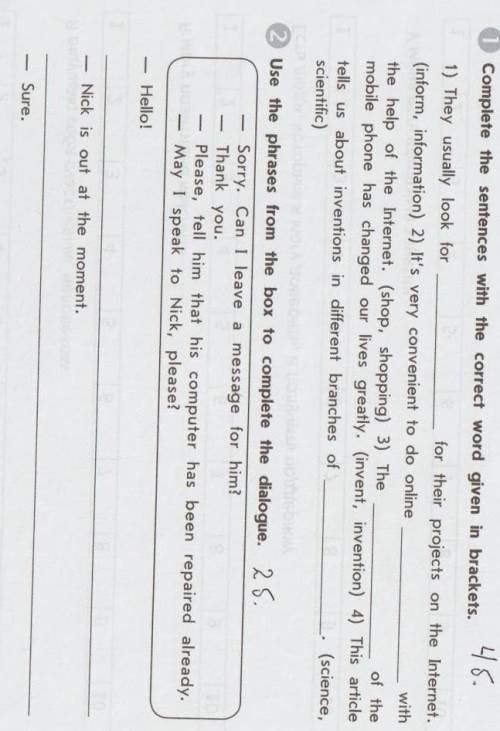 1 Complete the sentences with the correct word given in brackets. 4б.
1) They usually look for ____________ for their projects on the Internet.
(inform, information) 2) It's very convenient to do online ____________ with
the help of the Internet. (shop, shopping) 3) The ____________ of the
mobile phone has changed our lives greatly. (invent, invention) 4) This article
tells us about inventions in different branches of ____________. (science,
scientific)
2 Use the phrases from the box to complete the dialogue. 2б.
— Sorry. Can I leave a message for him?
— Thank you.
— Please, tell him that his computer has been repaired already.
— May I speak to Nick, please?
— Hello!
— Nick is out at the moment.
— Sure.